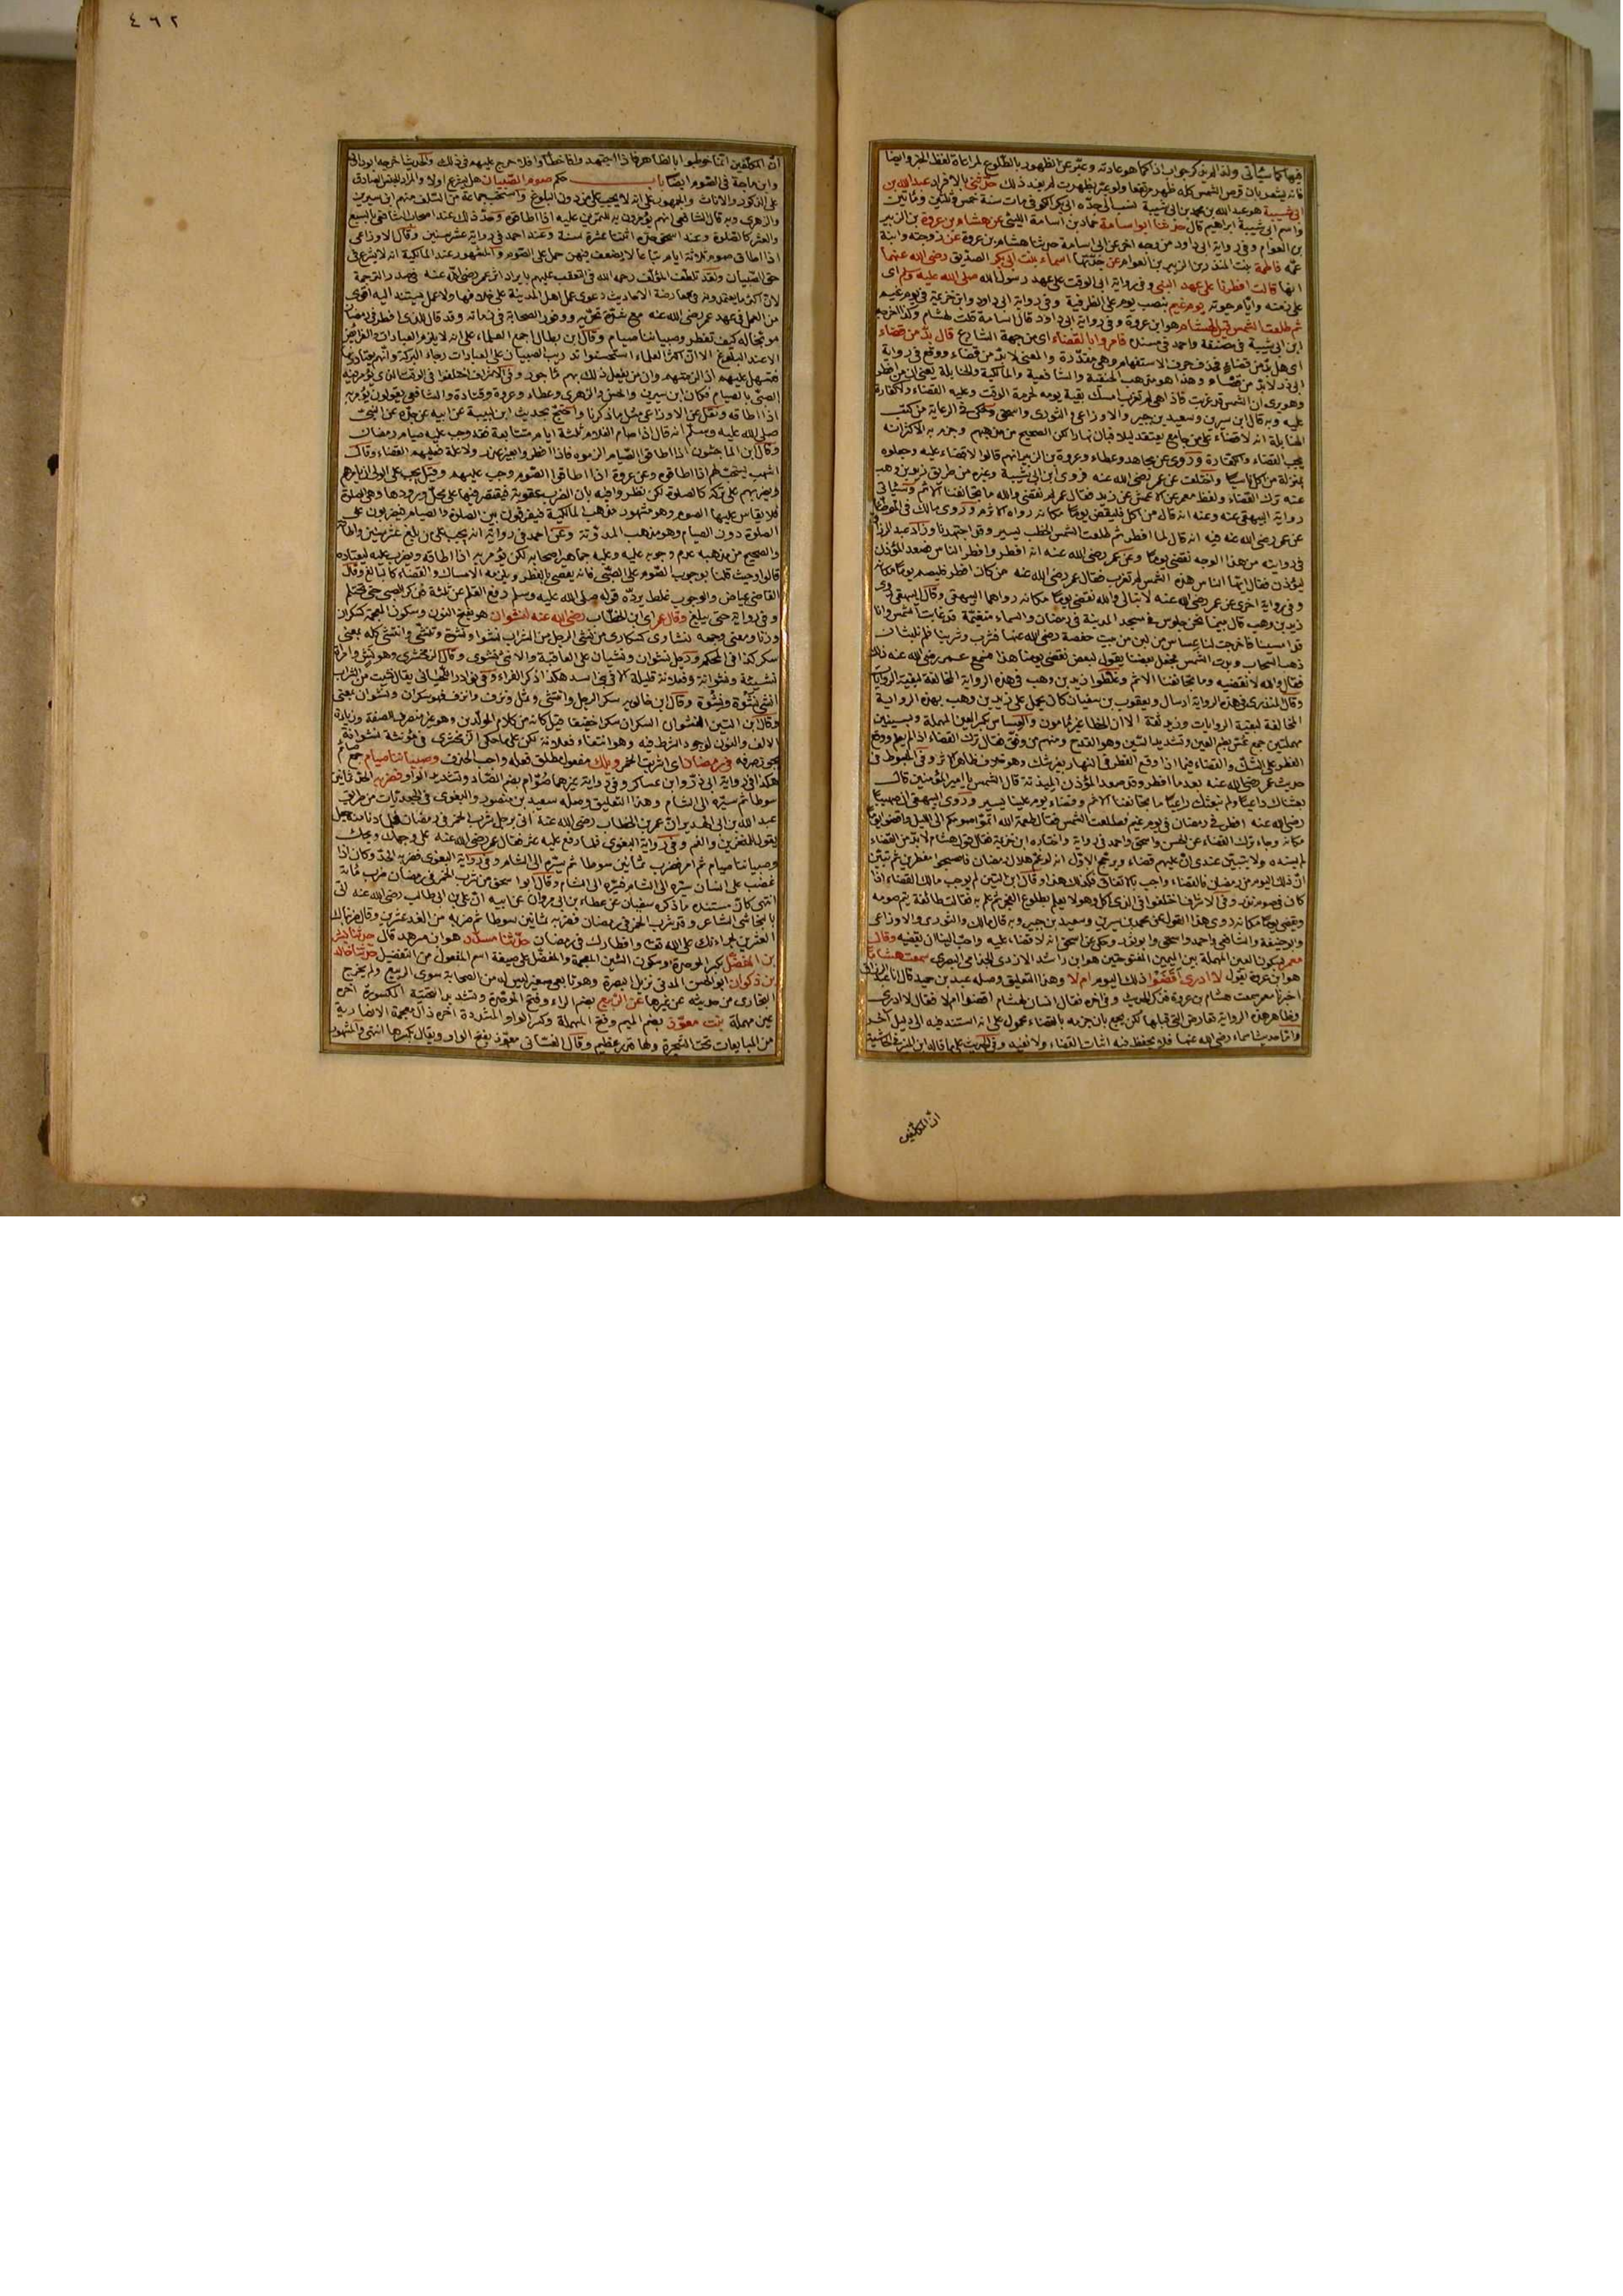 فيها كما سيأتي ولذا لم يذكر جواب اذا كما هو عادته وعبّر عن الظهور بالطلوع لمراعاة لفظ الخبر وايضا
فانه يشعر بان قرص الشمس كله ظهر مرتفعا ولو عبّر بظهرت لم يفد ذلك حدّثنى بالافراد عبد الله بن
ابى شيبة هو عبد الله بن محمد بن ابى شيبة نسب الى جدّه ابى بكر الكوفى مات سنة خمس وثلثين ومأتين
واسم ابى شيبة ابراهيم قال حدثنا ابو اسامة حماد بن اسامة الليثى عن هشام بن عروة بن الزبير
بن العوام وفى رواية ابى داود من وجه اخر عن ابى اسامة حدثنا هشام بن عروة عن زوجته وابنة
عمّه فاطمة بنت المنذر بن الزبير بن العوام عن جدّتها اسماء بنت ابى بكر الصديق رضى الله عنهما
انها قالت افطرنا على عهد النبى وفى رواية ابى الوقت على عهد رسول الله صلى الله عليه وسلم اى
على زمنه وايام حيوته يوم غيم بنصب يوم على الظرفية وفى رواية ابى داود وابن خزيمة فى يوم غيم
ثم طلعت الشمس قيل لهشام هو ابن عروة وفى رواية ابى داود قال اسامة قلت لهشام وكذا اخرجه
ابن ابى شيبة فى مصنفه واحمد فى مسنده فامروا بالقضاء اى من جهة الشارع قال بدّ من قضاء
اى هل بدّ من قضاء فحذف حرف الاستفهام وهى مقدّرة والمعنى لا بدّ من قضاء ووقع فى رواية
ابى ذر لا بدّ من قضاء وهذا هو مذهب الحنفية والشافعية والمالكية والحنابلة يعنى ان من افطر
وهو يرى ان الشمس قد غربت فاذا هى لم تغرب امسك بقية يومه لحرمة الوقت وعليه القضاء ولا كفارة
عليه وبه قال ابن سيرين وسعيد بن جبير والاوزاعى والثورى واسحق وحكى فى الرعاية من كتب
الحنابلة انه لا قضاء على من جامع يعتقد ليلا فبان نهارا لكن الصحيح من مذهبهم وجزم به الاكثر انه
يجب القضاء والكفارة وروى عن مجاهد وعطاء وعروة بن الزبير انهم قالوا لا قضاء عليه وجعلوه
بمنزلة من اكل ناسيا واختلف عن عمر رضى الله عنه فروى ابن ابى شيبة وغيره من طريق زيد بن وهب
عنه ترك القضاء ولفظ معمر عن الاعمش عن زيد فقال عمر لم نقض والله ما تجانفنا الاثم وسيأتى
رواية البيهقى عنه وعنه انه قال من اكل فليقض يوما مكانه رواه الاثرم وروى مالك فى الموطأ
عن عمر رضى الله عنه فيه انه قال لما افطر ثم طلعت الشمس الخطب يسير وقد اجتهدنا وزاد عبد الرزاق
فى روايته من هذا الوجه نقضى يوما وعن عمر رضى الله عنه انه افطر وافطر الناس فصعد المؤذن
ليؤذن فقال ايها الناس هذه الشمس لم تغرب فقال عمر رضى الله عنه من كان افطر فليصم يوما مكانه
وفى رواية اخرى عن عمر رضى الله عنه لا نبالى والله نقضى يوما مكانه رواهما البيهقى وقال البيهقى روى
زيد بن وهب قال بينما نحن جلوس فى مسجد المدينة فى رمضان والسماء متغيّمة قد غابت الشمس وانا
قد امسينا فاخرجت لنا عساس من لبن من بيت حفصة رضى الله عنها فشرب وشربنا فلم نلبث ان
ذهب السحاب وبدت الشمس فجعل بعضنا يقول لبعض نقضى يومنا هذا فسمع عمر رضى الله عنه ذلك
فقال والله لا نقضيه وما تجانفنا الاثم وغلّطوا زيد بن وهب فى هذه الرواية المخالفة لبقية الروايات
وقال المنذرى فى هذه الرواية ارسال ويعقوب بن سفيان كان يحمل على زيد بن وهب بهذه الرواية
المخالفة لبقية الروايات وزيد ثقة الا ان الخطأ غير مأمون والعساس بكسر العين المهملة وبسينين
مهملتين جمع عُسّ بضم العين وتشديد السين وهو القدح ومنهم من وفّق فقال ترك القضاء اذا لم يعلم ووقع
الفطر على الشك والقضاء فيما اذا وقع الفطر فى النهار بغير شك وهو خلاف ظاهر الاثر وفى المبسوط فى
حديث عمر رضى الله عنه بعد ما افطر وقد صعد المؤذن الميذنة قال الشمس يا امير المؤمنين قال
بعثناك داعيا ولم نبعثك راعيا ما تجانفنا الاثم وقضاء يوم علينا يسير وروى البيهقى ان صهيبا
رضى الله عنه افطر فى رمضان فى يوم غيم فطلعت الشمس فقال طعمة الله اتمّوا صومكم الى الليل واقضوا يوما
مكانه وجاء ترك القضاء عن الحسن واسحق واحمد فى رواية واختاره ابن خزيمة فقال قول هشام لا بدّ من القضاء
لم يسنده ولا يتبيّن عندى انّ عليهم قضاء ويرجّح الاوّل انه لو غمّ هلال رمضان فاصبحوا مفطرين ثم تبيّن
انّ ذلك اليوم من رمضان فالقضاء واجب بالاتفاق فكذلك هذا وقال ابن التين لم يوجب مالك القضاء اذا
كان فى صوم نذر وفى الاشراف اختلفوا فى الذى اكل وهو لا يعلم بطلوع الفجر ثم علم به فقالت طائفة يتم صومه
ويقضى يوما مكانه روى هذا القول عن محمد بن سيرين وسعيد بن جبير وبه قال مالك والثورى والاوزاعى
وابو حنيفة والشافعى واحمد واسحق وابو ثور وحكى عن اسحق انه لا قضاء عليه واحبّ الينا ان نقضيه وقال
معمر بسكون العين المهملة بين الميمين المفتوحتين هو ابن راشد الازدى الجذامى البصرى سمعت هشاما
هو ابن عروة يقول لا ادرى أقضوا ذلك اليوم ام لا وهذا التعليق وصله عبد بن حميد قال انا عبد الرزاق
اخبرنا معمر سمعت هشام بن عروة فذكر الحديث وفى اخره فقال انسان لهشام اقضوا ام لا فقال لا ادرى
وظاهر هذه الرواية تعارض التى قبلها لكن يجمع بان جزمه بالقضاء محمول على انه استند فيه الى دليل آخر
وامّا حديث اسماء رضى الله عنها فلا يحفظ فيه اثبات القضاء ولا نفيه وفى الحديث على ما قاله ابن المنير فى الحاشية
ان المكلفين
٤٦٢
انّ المكلّفين انما خوطبوا بالظاهر فاذا اجتهدوا فاخطأوا فلا حرج عليهم فى ذلك والحديث اخرجه ابو داود
وابن ماجة فى الصوم ايضا باب حكم صوم الصّبيان هل يشرع او لا والمراد الجنس الصادق
على الذكور والاناث والجمهور على انه لا يجب على من دون البلوغ واستحبّ جماعة من السّلف منهم ابن سيرين
والزهرى وبه قال الشافعى انهم يؤمرون به للتمرين عليه اذا اطاقوه وحدّ ذلك عند اصحاب الشافعى بالسبع
والعشر كالصلوة وعند اسحق حدّه اثنتا عشرة سنة وعند احمد فى رواية عشر سنين وقال الاوزاعى
اذا اطاق صوم ثلاثة ايام تباعا لا يضعف فيهن حمل على الصوم والمشهور عند المالكية انه لا يشرع فى
حق الصّبيان ولقد تلطّف المؤلف رحمه الله فى التعقب عليهم بايراد اثر عمر رضى الله عنه فى صدر الترجمة
لانّ اكثر ما يعتمدونه فى معارضة الاحاديث دعوى عمل اهل المدينة على خلافها ولا عمل يستند اليه اقوى
من العمل فى عهد عمر رضى الله عنه مع شدّة تحرّيه ووفور الصحابة فى زمانه وقد قال للذى افطر فى رمضان
موبّخا له كيف تفطر وصبياننا صيام وقال ابن بطال اجمع العلماء على انه لا يلزم العبادات والفرائض
الا عند البلوغ الا انّ اكثر العلماء استحسنوا تدريب الصبيان على العبادات رجاء البركة وانهم يعتادونها
فتسهل عليهم اذا لزمتهم وان من يفعل ذلك بهم مأجور وفى الاشراف اختلفوا فى الوقت الذى يؤمر فيه
الصبىّ بالصيام فكان ابن سيرين والحسن والزهرى وعطاء وعروة وقتادة والشافعى يقولون يؤمر به
اذا اطاقه ونقل عن الاوزاعى مثل ما ذكرنا واحتج بحديث ابن لبيبة عن ابيه عن جدّه عن النبى
صلى الله عليه وسلم انه قال اذا صام الغلام ثلثة ايام متتابعة فقد وجب عليه صيام رمضان
وقال ابن الماجشون اذا اطاقوا الصيام الزموه فاذا افطروا بغير عذر ولا علة فعليهم القضاء وقال
اشهب يستحبّ لهم اذا اطاقوه وعن عروة اذا اطاقوا الصّوم وجب عليهم وقيل يجب على الولى ان يأمرهم
ويضربهم على تركه كالصلوة لكن نظر وا فيه بان الضرب عقوبة فيقتصر فيها على محلّ ورودها وهى الصلوة
فلا يقاس عليها الصوم وهو مشهور مذهب المالكية فيفرّقون بين الصلوة والصيام فيضربون على
الصلوة دون الصيام وهو مذهب المدوّنة وعن احمد فى رواية انه يجب على من بلغ عشر سنين واطاقه
والصحيح من مذهبه عدم وجوبه عليه وعليه جماهير اصحابه لكن يؤمر به اذا اطاقه ويضرب عليه ليعتاده
قالوا وحيث قلنا بوجوب الصوم على الصبى فانه يعصى بالفطر ويلزمه الامساك والقضاء كالبالغ وقال
القاضى عياض والوجوب غلط يردّه قوله صلى الله عليه وسلم رفع القلم عن ثلثة فذكر الصبى حتى يحتلم
وفى رواية حتى يبلغ وقال عمر اى ابن الخطّاب رضى الله عنه لنشوان هو بفتح النون وسكون المعجمة كسكران
وزنا ومعنى وجمعه نشاوى كسكارى من نشى الرجل من الشراب نشوا ونشوة وتنشّى وانتشى كله بمعنى
سكر كذا فى المحكم ورجل نشوان ونشيان على المعاقبة والانثى نشوى وقال الزمخشرى وهو نش وامرأة
نشيئة ونشوانة وفعلانة قليلة الا فى بنى اسد هكذا ذكر الفراء وفى نوادر اللحيانى يقال نشيت من الشراب
انشى نُشوة ونِشوة وقال ابن خالويه سكر الرجل وانتشى وثمل ونزف وانزف فهو سكران ونشوان بمعنى
وقال ابن التين النشوان السكران سكرا خفيفا قيل كانه من كلام المولّدين وهو غير منصرف للصفة وزيادة
الالف والنون لوجود الشرط فيه وهو انتفاء فعلانة لكن على ما حكى الزمخشرى فى مؤنثه نشوانة
يجوز صرفه فى رمضان اى اشربت الخمر ويلك مفعول مطلق فعله واجب الحذف وصبياننا صيام جمع صائم
هكذا فى رواية ابى ذرّ وابن عساكر وفى رواية غيرهما صُوّام بضم الصّاد وتشديد الواو فضربه الحدّ ثمانين
سوطا ثم سيّره الى الشام وهذا التعليق وصله سعيد بن منصور والبغوى فى الجعديّات من طريق
عبد الله بن ابى الهذيل انّ عمر بن الخطاب رضى الله عنه اتى برجل شرب الخمر فى رمضان فلما دنا منه جعل
يقول للمنخرين والفم وفى رواية البغوى فلما رفع عليه عثر فقال عمر رضى الله عنه على وجهك ويحك
وصبياننا صيام ثم امر فضرب ثمانين سوطا ثم سيّره الى الشام وفى رواية البغوى فضربه الحدّ وكان اذا
غضب على انسان سيّره الى الشام فسيّره الى الشام وقال ابو اسحق من شرب الخمر فى رمضان ضرب مائة
انتهى كانّ مستنده ما ذكره سفيان عن عطاء بن ابى مروان عن ابيه انّ على بن ابى طالب رضى الله عنه اتى
بالنجاشى الشاعر وقد شرب الخمر فى رمضان فضربه ثمانين سوطا ثم ضربه من الغد عشرين وقال ضربناك
العشرين لجراءتك على الله تعالى وافطارك فى رمضان حدّثنا مسدّد هو ابن مسرهد قال حدثنا بشر
بن المفضّل بكسر الموحدة وسكون الشين المعجمة والمفضّل على صيغة اسم المفعول من التفضيل حدّثنا خالد
بن ذكوان ابو الحسن المدنى نزيل البصرة وهو تابعى صغير ليس له من الصحابة سوى الربيع ولم يخرج
البخارى من حديثه عن غيرها عن الرّبيع بضم الراء وفتح الموحّدة وتشديد التحتيّة المكسورة اخره
عين مهملة بنت معوّذ بضم الميم وفتح المهملة وكسر الواو المشدّدة اخره ذال معجمة الانصارية
من المبايعات تحت الشّجرة ولها قدر عظيم وقال الغسّانى معوّذ بفتح الواو ويقال بكسرها انتهى والمشهور